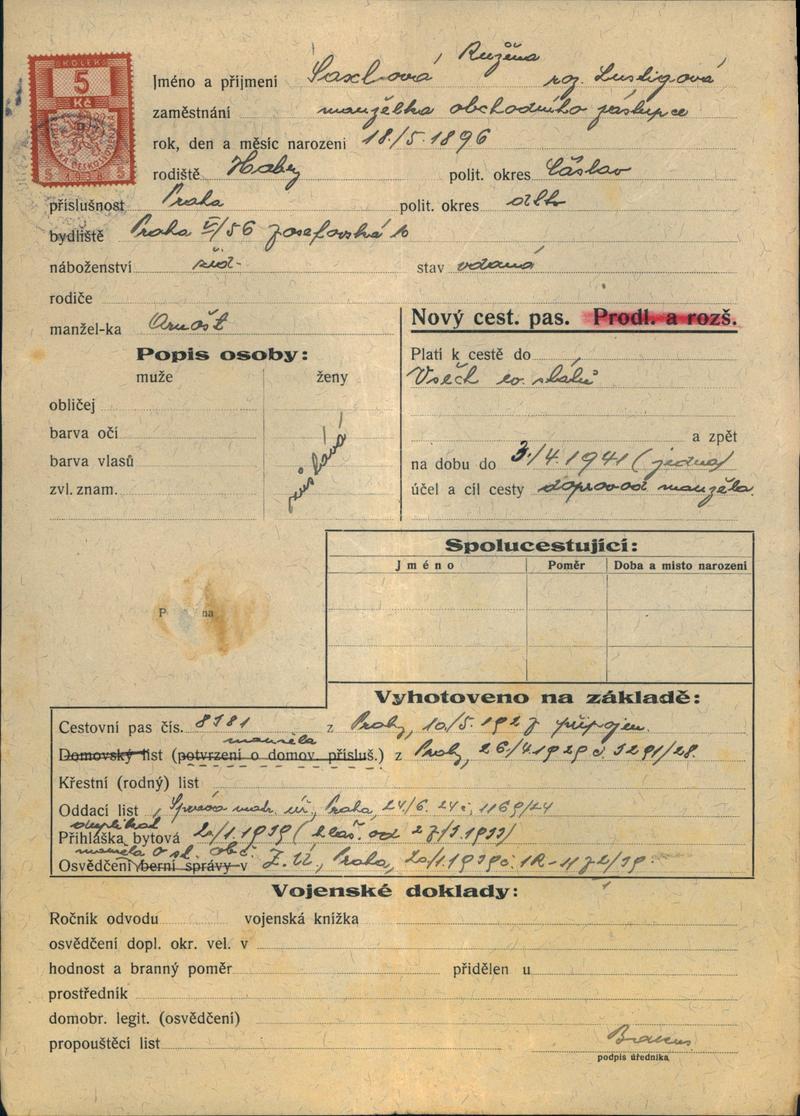 KOLEK
5
Kč
1938
Jméno a příjmení Saxlová Ružena roz. Lustigová
zaměstnání manželka obchodního zástupce
rok, den a měsíc narození 18./5. 1896
rodiště Habry polit. okres Čáslav
příslušnost Praha polit. okres dtto
bydliště Praha V/56 Josefovská
náboženství žid. stav vdaná
rodiče
manžel-ka Arnošt
Nový cest. pas. Prodl. a rozš.
Popis osoby:
muže ženy
obličej
barva očí
barva vlasů
zvl. znam.
Platí k cestě do
Všech ev. států
a zpět
na dobu do 3./4. 1941 (jedna)
účel a cíl cesty doprovod manžela
Spolucestující:
Jméno Poměr Doba a místo narození
P na
Vyhotoveno na základě:
Cestovní pas čís. 8181 z Prahy, 10/5. 1927 připojen.
manžela
Domovský list (potvrzení o domov. přísluš.) z Prahy, 26/4. 1929 č. 3291/28.
Křestní (rodný) list
Oddací list Správa matr. úř., Praha, 24/6. 24 č. 1169/24
duplikát
Přihláška bytová 20/1. 1939 (hlaš. od
manžela o st. obč.
Osvědčení berní správy v Z. Ú., Praha, 20/1. 1939 č.
Vojenské doklady:
Ročník odvodu vojenská knížka
osvědčení dopl. okr. vel. v
hodnost a branný poměr přidělen u
prostředník
domobr. legit. (osvědčení)
propouštěcí list
podpis úředníka